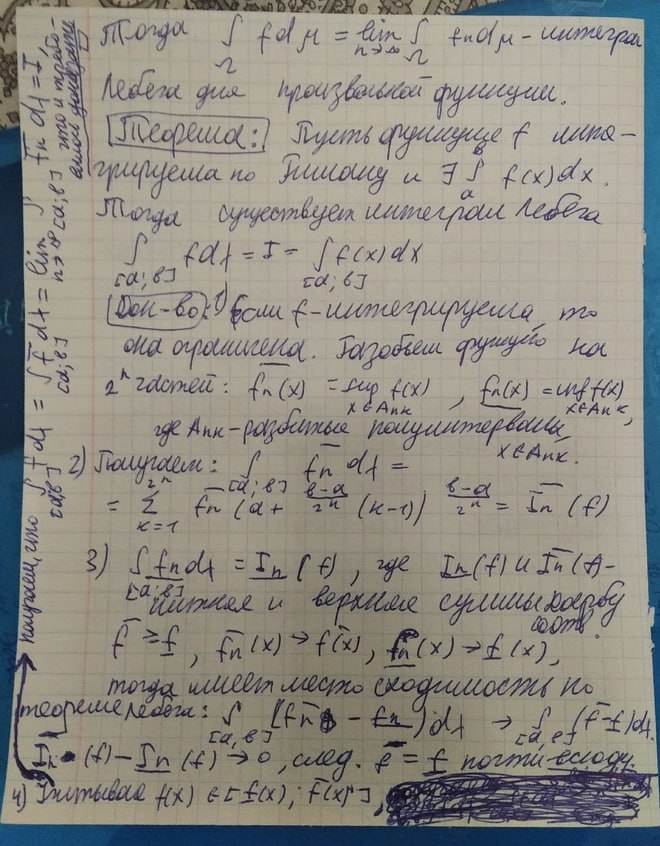 Тогда ∫_Ω f dμ = lim_{n→∞} ∫_Ω f_n dμ - интеграл
Лебега для произвольной функции.
Теорема: Пусть функция f инте-
грируема по Риману и ∃ ∫_a^b f(x)dx.
Тогда существует интеграл Лебега
∫_{[a;b]} f dλ = I = ∫_{[a;b]} f(x)dx
Док-во: 1) Если f-интегрируема, то
она ограничена. Разобьем функцию на
2^n частей: \overline{f_n}(x) = sup_{x∈A_{nк}} f(x), \underline{f_n}(x) = inf_{x∈A_{nк}} f(x),
где A_{nк}-разбитые полуинтервалы, x∈A_{nк}.
2) Получаем: ∫_{[a;b]} \overline{f_n} dλ =
= Σ_{к=1}^{2^n} \overline{f_n}(a + \frac{b-a}{2^n}(к-1)) \frac{b-a}{2^n} = \overline{I_n}(f)
3) ∫_{[a;b]} \underline{f_n} dλ = \underline{I_n}(f), где \underline{I_n}(f) и \overline{I_n}(f)-
нижняя и верхняя суммы Дарбу
соотв.
\overline{f} ≥ \underline{f}, \overline{f_n}(x) → \overline{f}(x), \underline{f_n}(x) → \underline{f}(x),
тогда имеет место сходимость по
теореме Лебега: ∫_{[a,b]} (\overline{f_n} - \underline{f_n})dλ → ∫_{[a,b]} (\overline{f}-\underline{f})dλ.
\overline{I_n}(f) - \underline{I_n}(f) → 0, след. \overline{f} = \underline{f} почти всюду.
4) Учитывая f(x) ∈ [\underline{f}(x); \overline{f}(x)],
получаем, что ∫_{[a;b]} f dλ = ∫_{[a;b]} \overline{f} dλ = lim_{n→∞} ∫_{[a;b]} \overline{f_n} dλ = I,
что и требо-